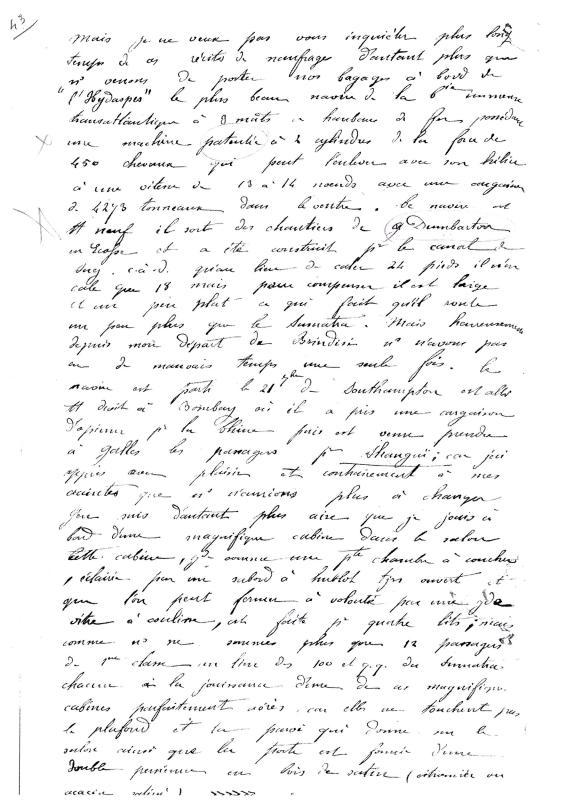 43
mais je ne veux pas vous inquiéter plus long
temps de ces récits de naufrages d'autant plus que
ns venons de porter nos bagages à bord de
"l'Hydaspes" le plus beau navire de la Cie immense
transatlantique à 3 mâts a haubans de fer possédant
une machine patentée à 2 cylindres de la force de
450 chevaux qui peut l'enlever avec son hélice
à une vitesse de 13 à 14 nœuds avec une cargaison
de 4273 tonneaux dans le ventre. Le navire est
tt neuf il sort des chantiers de Dumbarton
en Ecosse et a été construit pr le canal de
Suez. c.à.d. qu'au lieu de caler 24 pieds il n'en
cale que 18 mais pour compenser il est large
et un peu plat ce qui fait qu'il roule
un peu plus que le Sumatra. Mais heureusement
depuis mon départ de Brindisi ns n'avons pas
eu de mauvais temps une seule fois. Le
navire est parti le 21 de Southampton est allé
tt droit à Bombay où il a pris une cargaison
d'opium pr la Chine puis est venu prendre
à Galles les passagers pr Shangaï; car j'ai
appris avec plaisir et contrairement à mes
craintes que ns n'aurions plus à changer
J'en suis d'autant plus aise que je jouis à
bord d'une magnifique cabine dans le salon
Cette cabine, gde comme une pte chambre à coucher
, éclairée par un sabord à hublot tjrs ouvert et
que l'on peut fermer à volonté par une gde
vitre à coulisse, est faite pr quatre lits; mais
comme ns ne sommes plus que 12 passagers
de 1ère classe au lieu des 100 et q.q. du Sumatra
chacun a la jouissance d'une de ces magnifiques
cabines parfaitement aérées car elles ne touchent pas
le plafond et la paroi qui donne sur le
salon ainsi que la porte est formée d'une
double persienne en bois de satin (citronnier ou
acacia veiné)